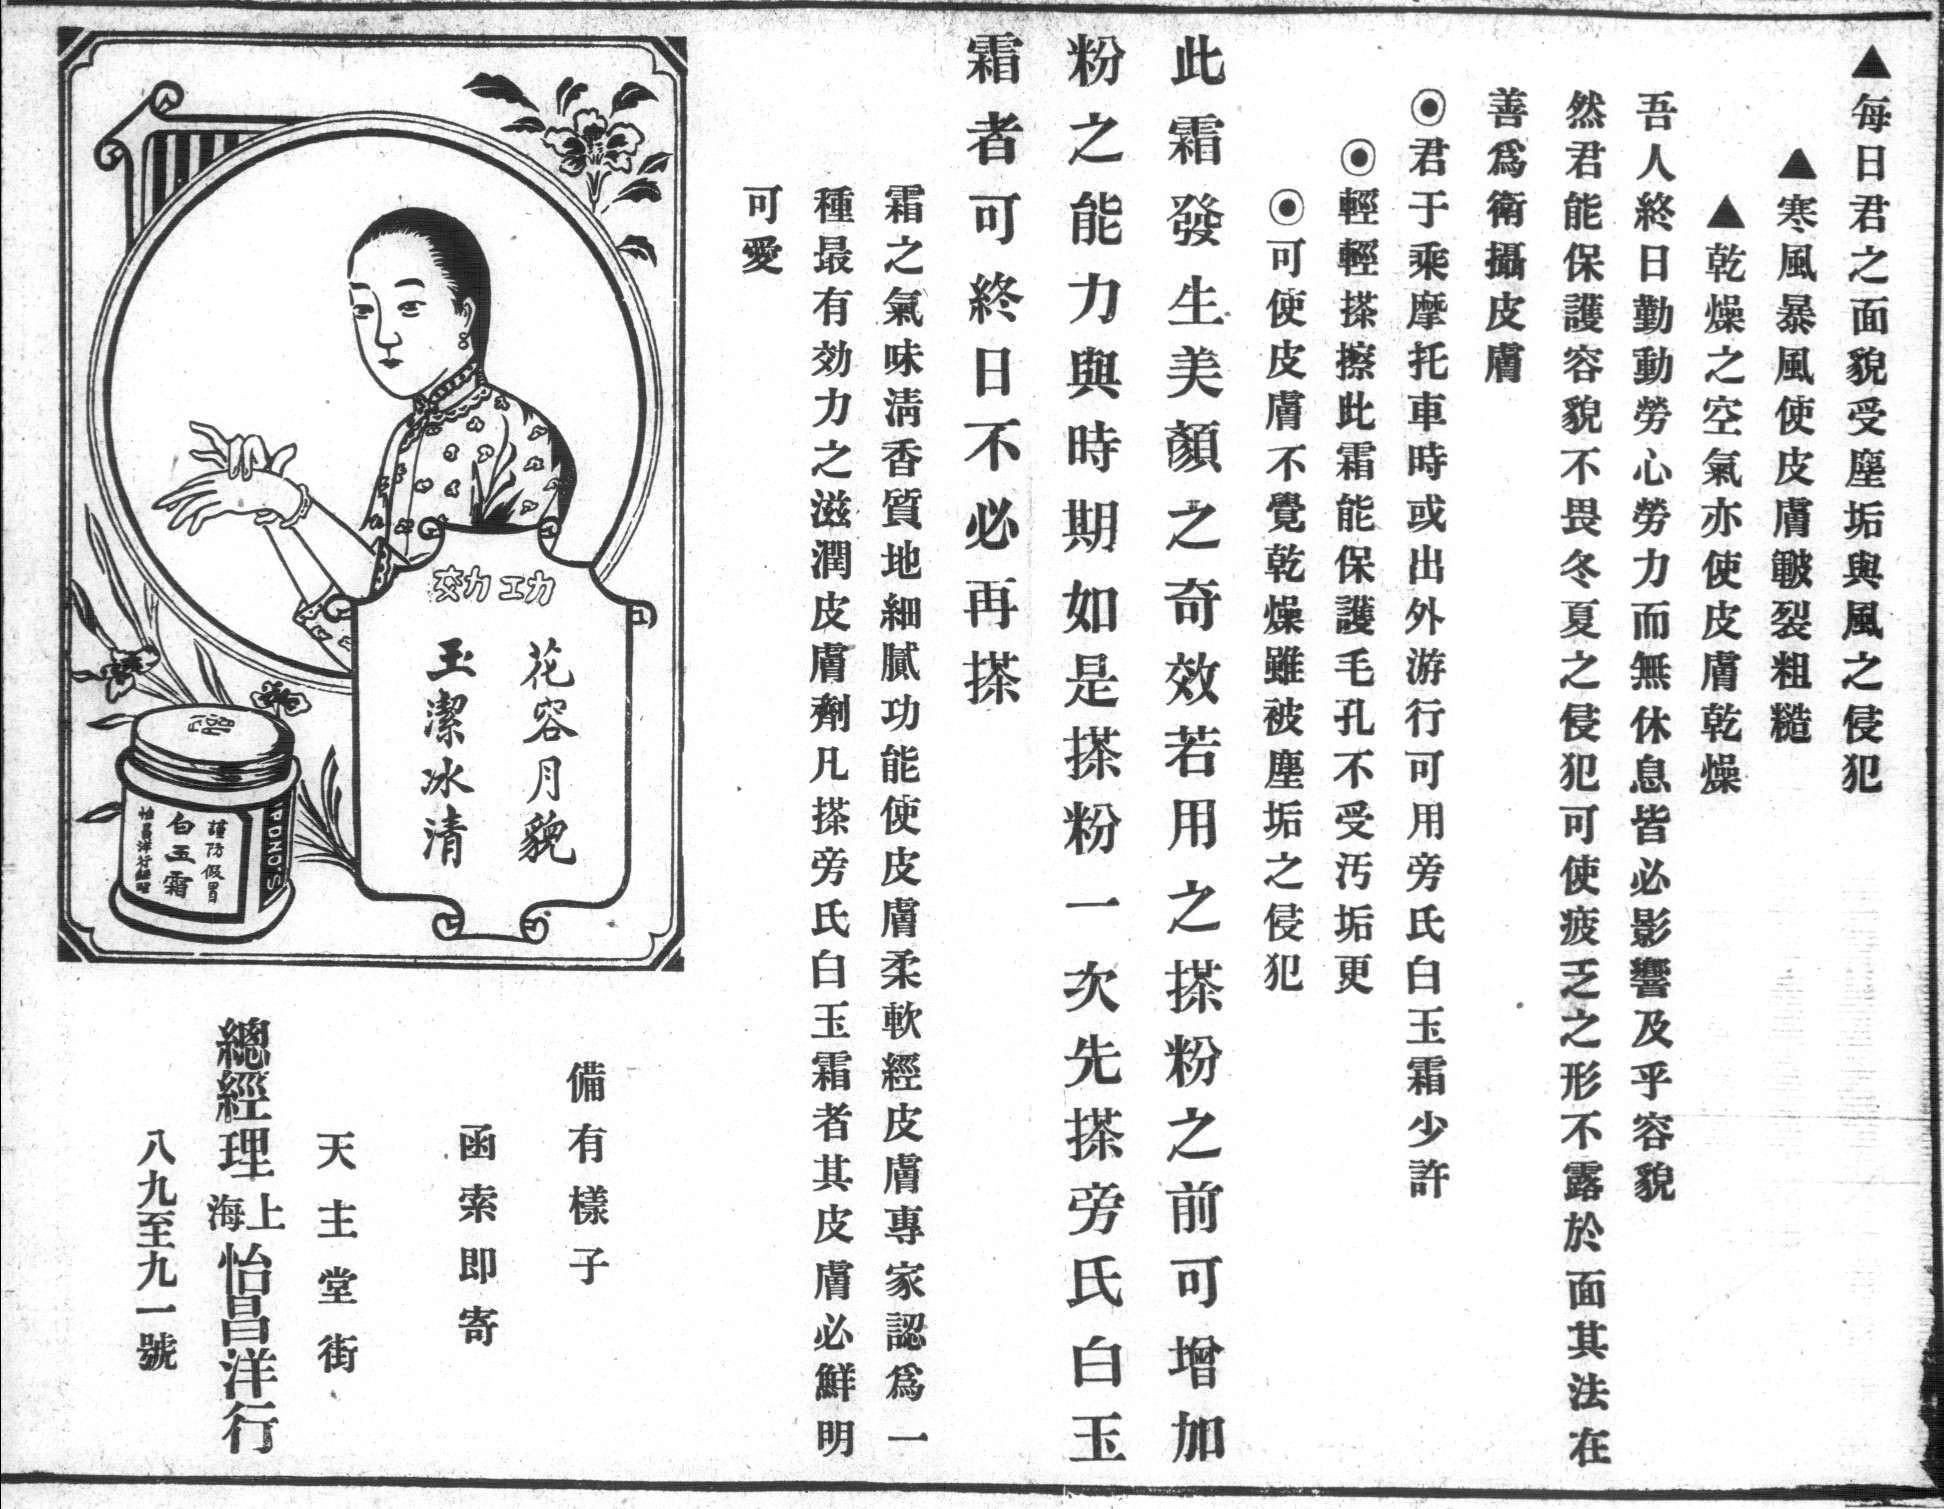 ▲每日君之面貌受塵垢與風之侵犯
▲寒風暴風使皮膚皸裂粗糙
▲乾燥之空氣亦使皮膚乾燥
吾人終日勤動勞心勞力而無休息皆必影響及乎容貌
然君能保護容貌不畏冬夏之侵犯可使疲乏之形不露於面其法在
善爲衛攝皮膚
◉君于乘摩托車時或出外游行可用旁氏白玉霜少許
◉輕輕搽擦此霜能保護毛孔不受汚垢更
◉可使皮膚不覺乾燥雖被塵垢之侵犯
此霜發生美顏之奇效若用之搽粉之前可增加
粉之能力與時期如是搽粉一次先搽旁氏白玉
霜者可終日不必再搽
霜之氣味淸香質地細膩功能使皮膚柔軟經皮膚專家認爲一
種最有効力之滋潤皮膚劑凡搽旁氏白玉霜者其皮膚必鮮明
可愛
功効
花容月貌
玉潔冰清
POND'S
謹防假冒
白玉霜
怡昌洋行經理
備有樣子
函索即寄
天主堂街
總經理上海怡昌洋行
八九至九一號